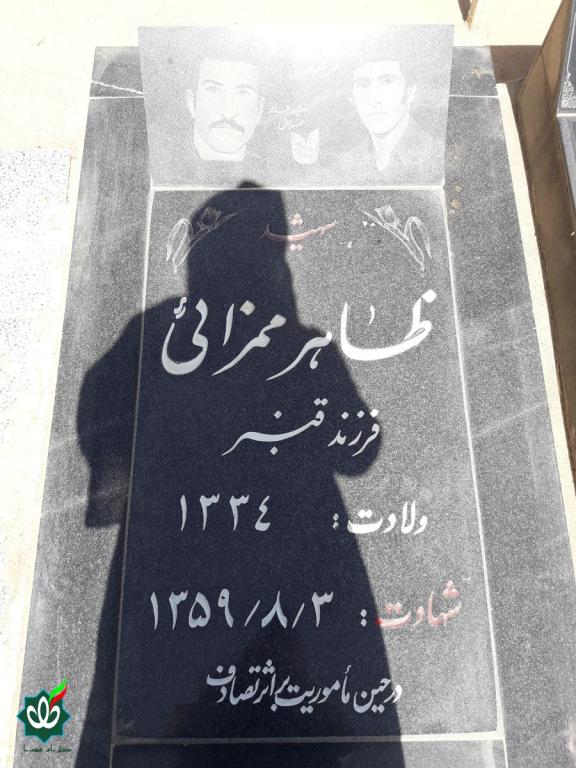 شهید
ظاهر ممزائی
فرزند قنبر
ولادت : ۱۳۳٤
شهادت : ۱۳۵۹/۸/۳
در حین مأموریت بر اثر تصادف